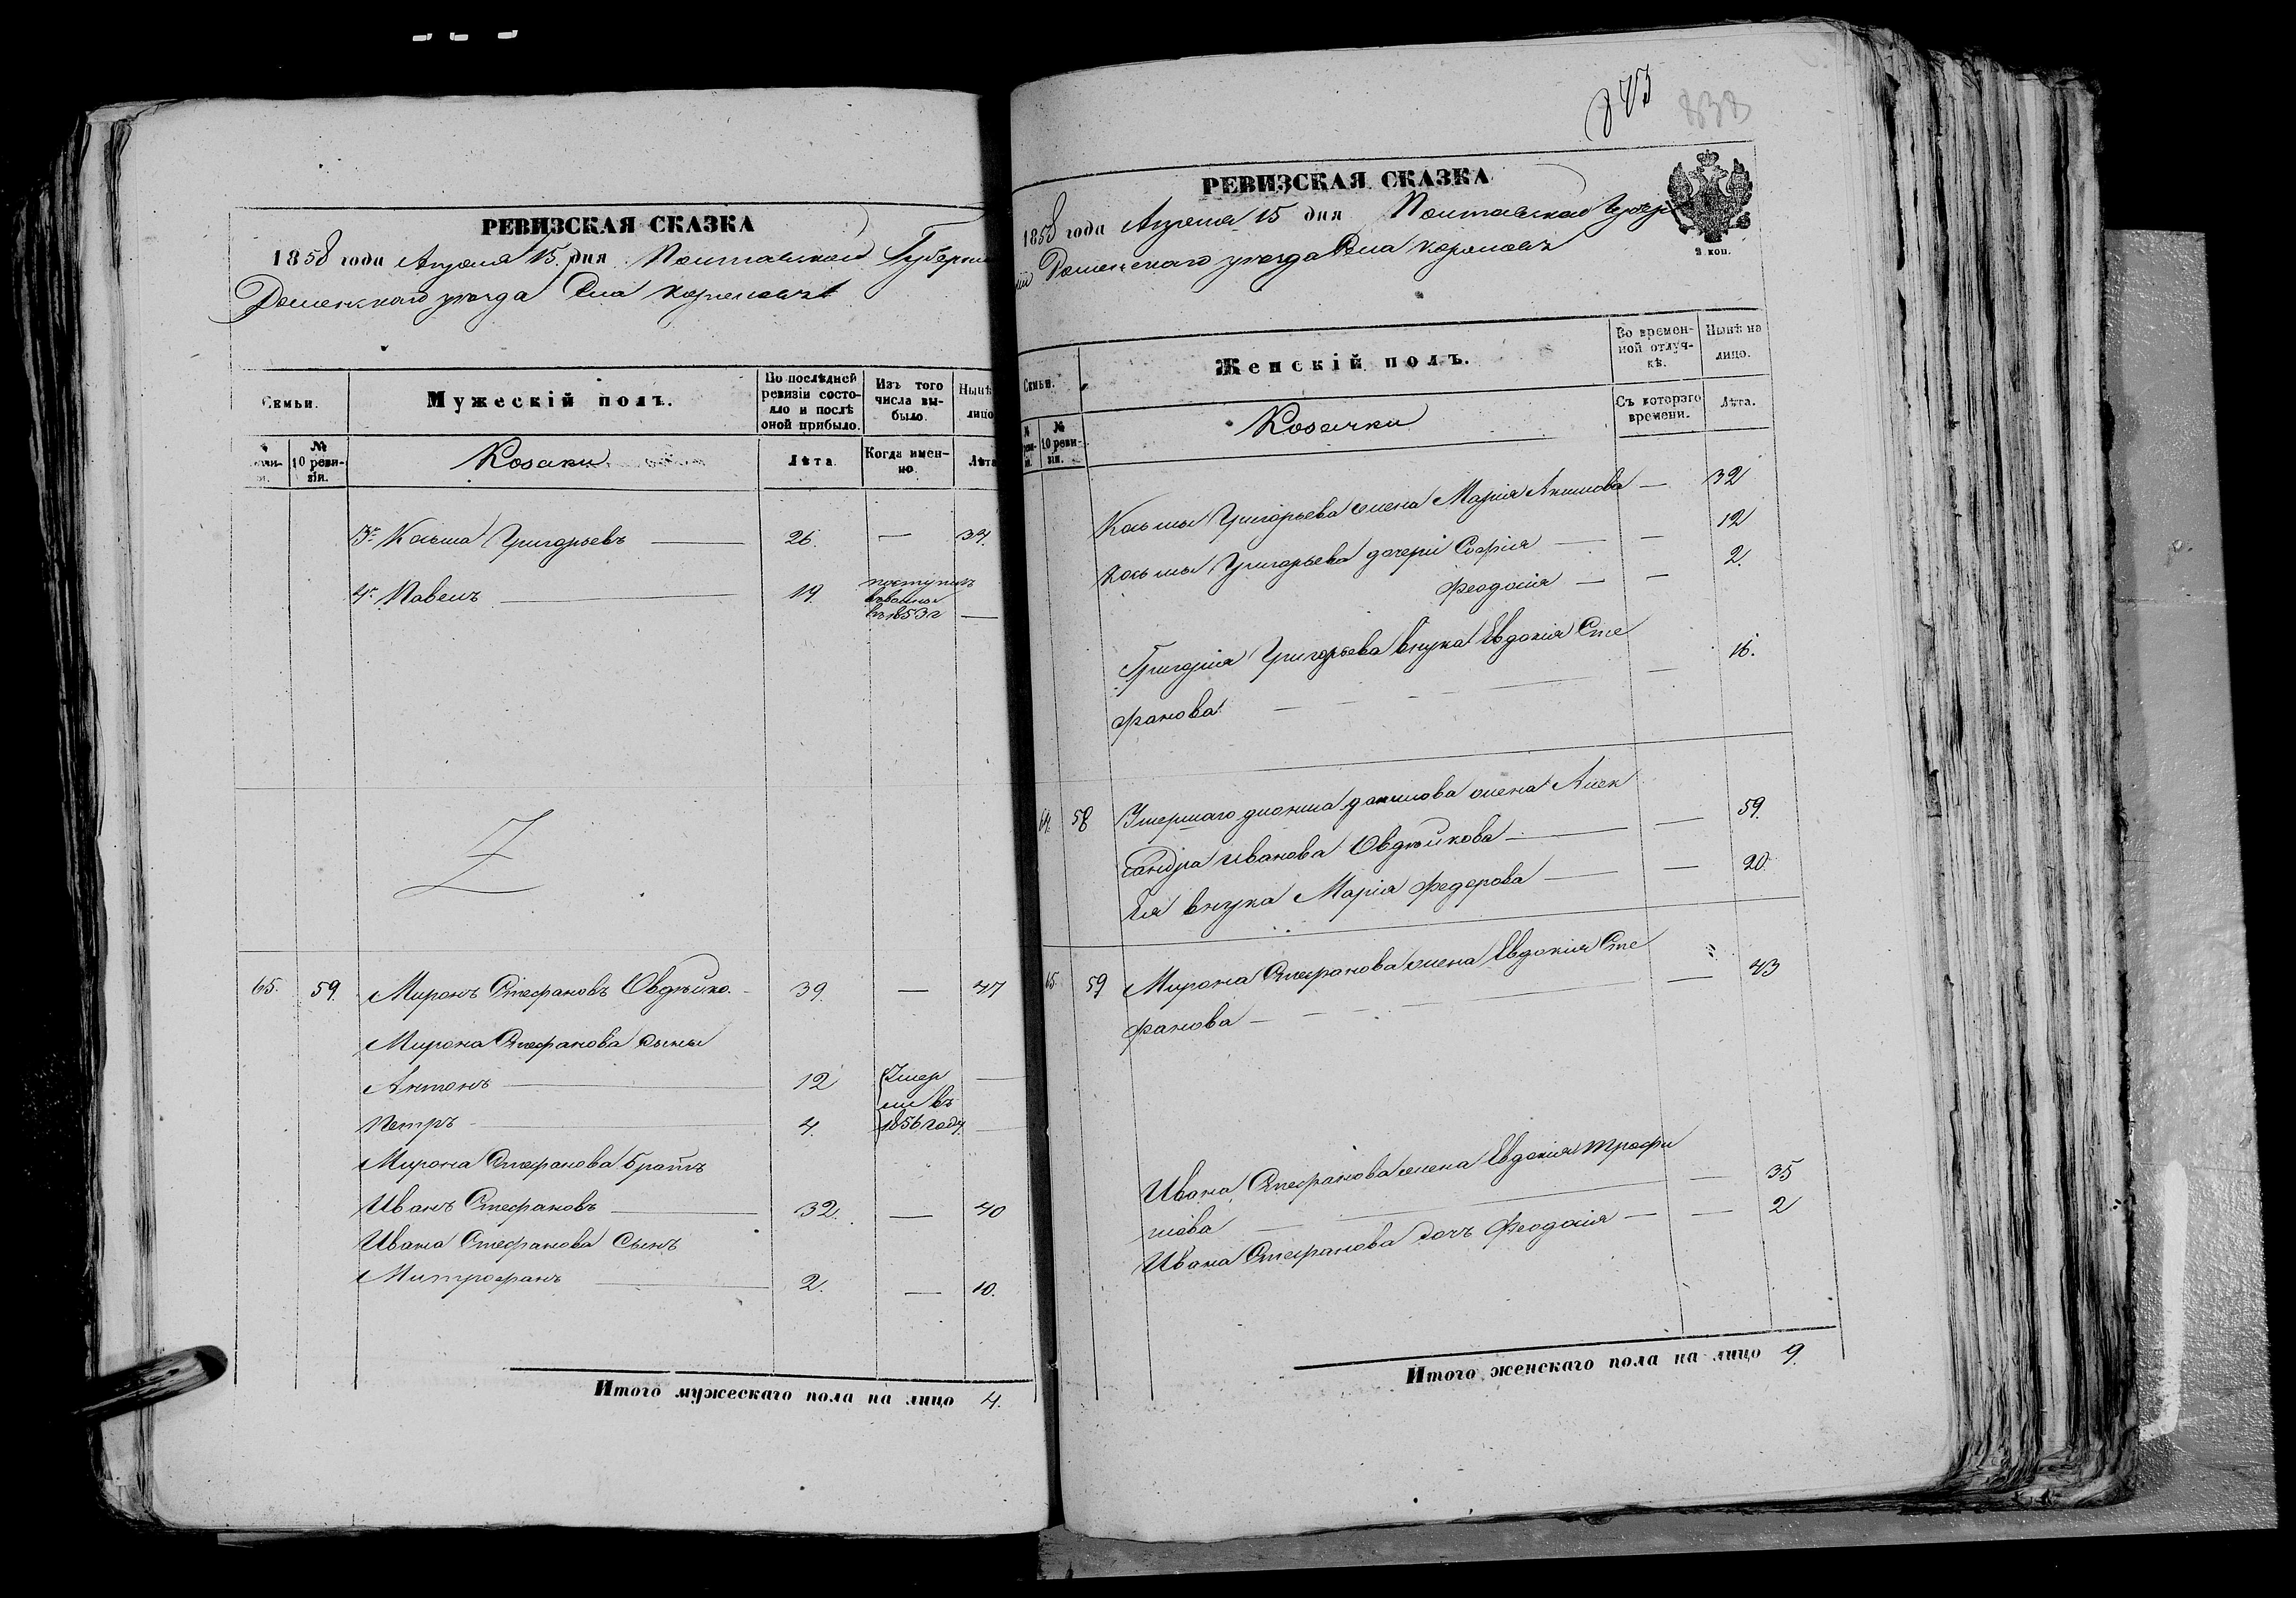 РЕВИЗСКАЯ СКАЗКА
1858 года Апреля 15 дня Полтавской Губерни
Роменскаго уезда Села
Семьи.
Мужескій полъ.
По послѣдней ревизіи состояло и послѣ оной прибыло.
Изъ того числа выбыло.
Нынѣ
лицо
№ 10 ревизіи.
Козаки
Лѣта
Когда именно
Лѣта
3й Косьма Григорьевъ — 26. — 34.
4й Павелъ — 19. поступилъ
въ 1853 г —
65. 59. Миронъ Стефановъ Овдѣйко. — 39. — 47
Мирона Стефанова сыны
Антонъ — 12 Умер
ли въ —
Петръ — 4. 1856 году —
Мирона Стефанова братъ
Иванъ Стефановъ — 32. — 40
Ивана Стефанова Сынъ
Митрофанъ — 2. — 10.
Итого мужескаго пола на лицо 4.
РЕВИЗСКАЯ СКАЗКА
1858 года Апреля 15 дня Полтавской Губер
ніи Роменскаго уезда Села
2 коп.
Семьи.
Женскій полъ.
Во временной отлучкѣ.
Нынѣ на лицо.
№ 10 ревизіи.
Козачки
Съ котораго времени.
Лѣта.
Косьмы Григорьева жена Марія Акимова — 32
Косьмы Григорьева дочери Софія — — 12
Феодосія — — 2.
Григорія Григорьева внука Евдокія Сте
фанова — — 16.
64. 58 Умершаго Данилова жена Алек
сандра Иванова Овдѣйкова — — 59.
Ея внука Марія Федорова — — 20.
65 59 Мирона Стефанова жена Евдокія Сте
фанова — — 43
Ивана Стефанова жена Евдокія Трофи
мова — — 35
Ивана Стефанова дочь Феодосія — — 2
Итого женскаго пола на лицо 9.